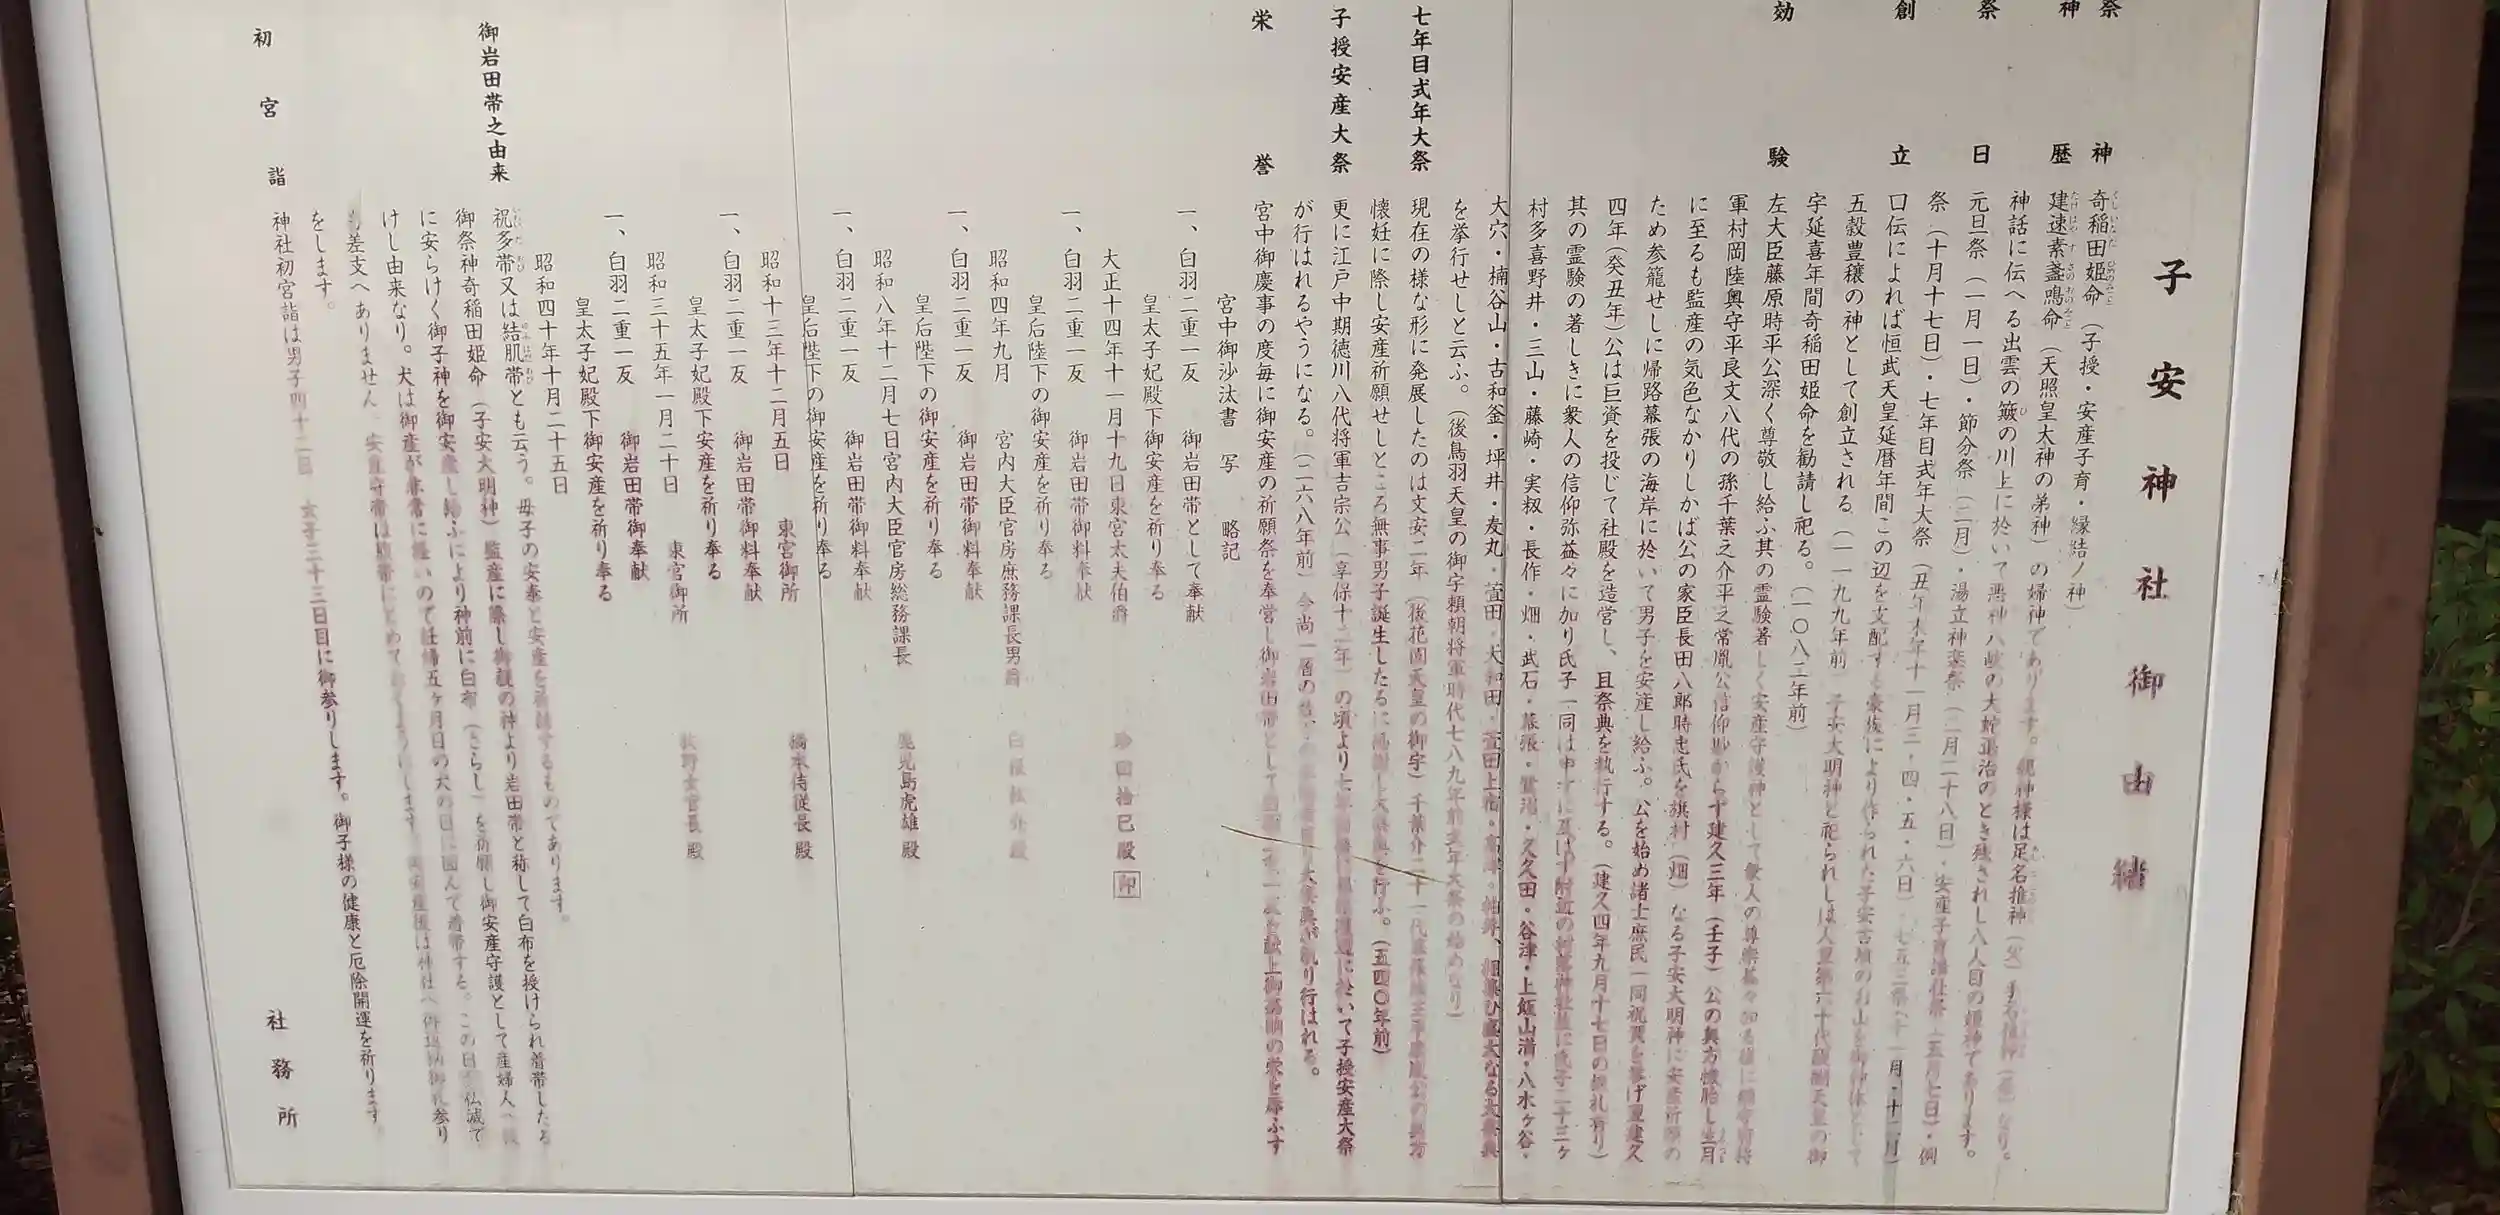 子安神社御由緒
祭神 奇稲田姫命（子授・安産子育・縁結ノ神）
神歴 建速素盞鳴命（天照皇大神の弟神）の婦神であります。親神様は足名推神（父）手名推神（母）なり。
神話に伝へる出雲の簸の川上に於いて悪神八岐の大蛇退治のとき残されし八人目の姫神であります。
祭日 元旦祭（一月一日）・節分祭（二月）・湯立神楽祭（二月二十八日）・安産子育講社祭（五月七日）・例
祭（十月十七日）・七年目式年大祭（丑年未年十一月三・四・五・六日）・七五三祭（十一月・十二月）
創立 口伝によれば恒武天皇延暦年間この辺を支配する豪族により作られた子安古墳のお山を御神体として
五穀豊穣の神として創立される。（一一九九年前）子安大明神と祀られしは人皇第六十代醍醐天皇の御
宇延喜年間奇稲田姫命を勧請し祀る。（一〇八二年前）
効験 左大臣藤原時平公深く尊敬し給ふ其の霊験著しく安産守護神として衆人の尊崇益々加る
軍村岡陸奥守平良文八代の孫千葉之介平之常胤公信仰妙からず建久三年（壬子）公の奥方懐胎し生月
に至るも監産の気色なかりしかば公の家臣長田八郎時忠氏を旗村（畑）なる子安大明神に安産祈願の
ため参籠せしに帰路幕張の海岸に於いて男子を安産し給ふ。公を始め諸士庶民一同祝賀を挙げ翌建久
四年（癸丑年）公は巨資を投じて社殿を造営し、且祭典を執行する。（建久四年九月十七日の棟札有り）
其の霊験の著しきに衆人の信仰弥益々に加り氏子一同は申すに及ばず附近の村落神社並に氏子二十三ヶ
村多喜野井・三山・藤崎・実籾・長作・畑・武石・幕張・鷺沼・久久田・谷津・上飯山満・八木ヶ谷・
大穴・楠谷山・古和釜・坪井・麦丸・萱田・大和田・萱田上宿・高津
を挙行せしと云ふ。（後鳥羽天皇の御宇頼朝将軍時代七八九年前式年大祭の始めなり）
七年目式年大祭 現在の様な形に発展したのは文安二年（後花園天皇の御宇）千葉介二十一代
懐妊に際し安産祈願せしところ無事男子誕生したるに感謝し大祭典を行ふ。（五四〇年前）
子授安産大祭 更に江戸中期徳川八代将軍吉宗公（享保十二年）の頃より七年目毎に於いて子授安産大祭
が行はれるやうになる。（二六八年前）今尚一層の執り行はれる。
栄誉 宮中御慶事の度毎に御安産の祈願祭を奉営し御岩田帯として白羽二重一反を献上御嘉納の栄を辱ふす
宮中御沙汰書 写 略記
一、白羽二重一反 御岩田帯として奉献
皇太子妃殿下御安産を祈り奉る
大正十四年十一月十九日東宮太夫伯爵 珍田捨巳殿 印
一、白羽二重一反 御岩田帯御料奉献
皇后陛下の御安産を祈り奉る
昭和四年九月 宮内大臣官房庶務課長男爵 白根松介殿
一、白羽二重一反 御岩田帯御料奉献
皇后陛下の御安産を祈り奉る
昭和八年十二月七日宮内大臣官房総務課長 鹿児島虎雄殿
一、白羽二重一反 御岩田帯御料奉献
皇后陛下の御安産を祈り奉る
昭和十三年十二月五日 東宮御所 橋本侍従長殿
一、白羽二重一反 御岩田帯御料奉献
皇太子妃殿下安産を祈り奉る
昭和三十五年一月二十日 東宮御所 牧野女官長殿
一、白羽二重一反 御岩田帯御奉献
皇太子妃殿下御安産を祈り奉る
昭和四十年十月二十五日
御岩田帯之由来 祝多帯又は結肌帯とも云う。母子の安泰と安産を祈請するものであります。
御祭神奇稲田姫命（子安大明神）監産に際し御親の神より岩田帯と称して白布を授けられ着帯したる
に安らけく御子神を御安産し給ふにより神前に白布（さらし）を祈願し御安産守護として産婦人へ授
けし由来なり。犬は御産が非常に軽いので妊婦五ヶ月目の犬の日に因んで着帯する。この日が仏滅で
も差支へありません。安産守帯は腹帯にとめておくようにします。御安産後は神社へ御返納御礼参り
をします。
初宮詣 神社初宮詣は男子四十二日 女子三十三日目に御参りします。御子様の健康と厄除開運を祈ります。
社務所